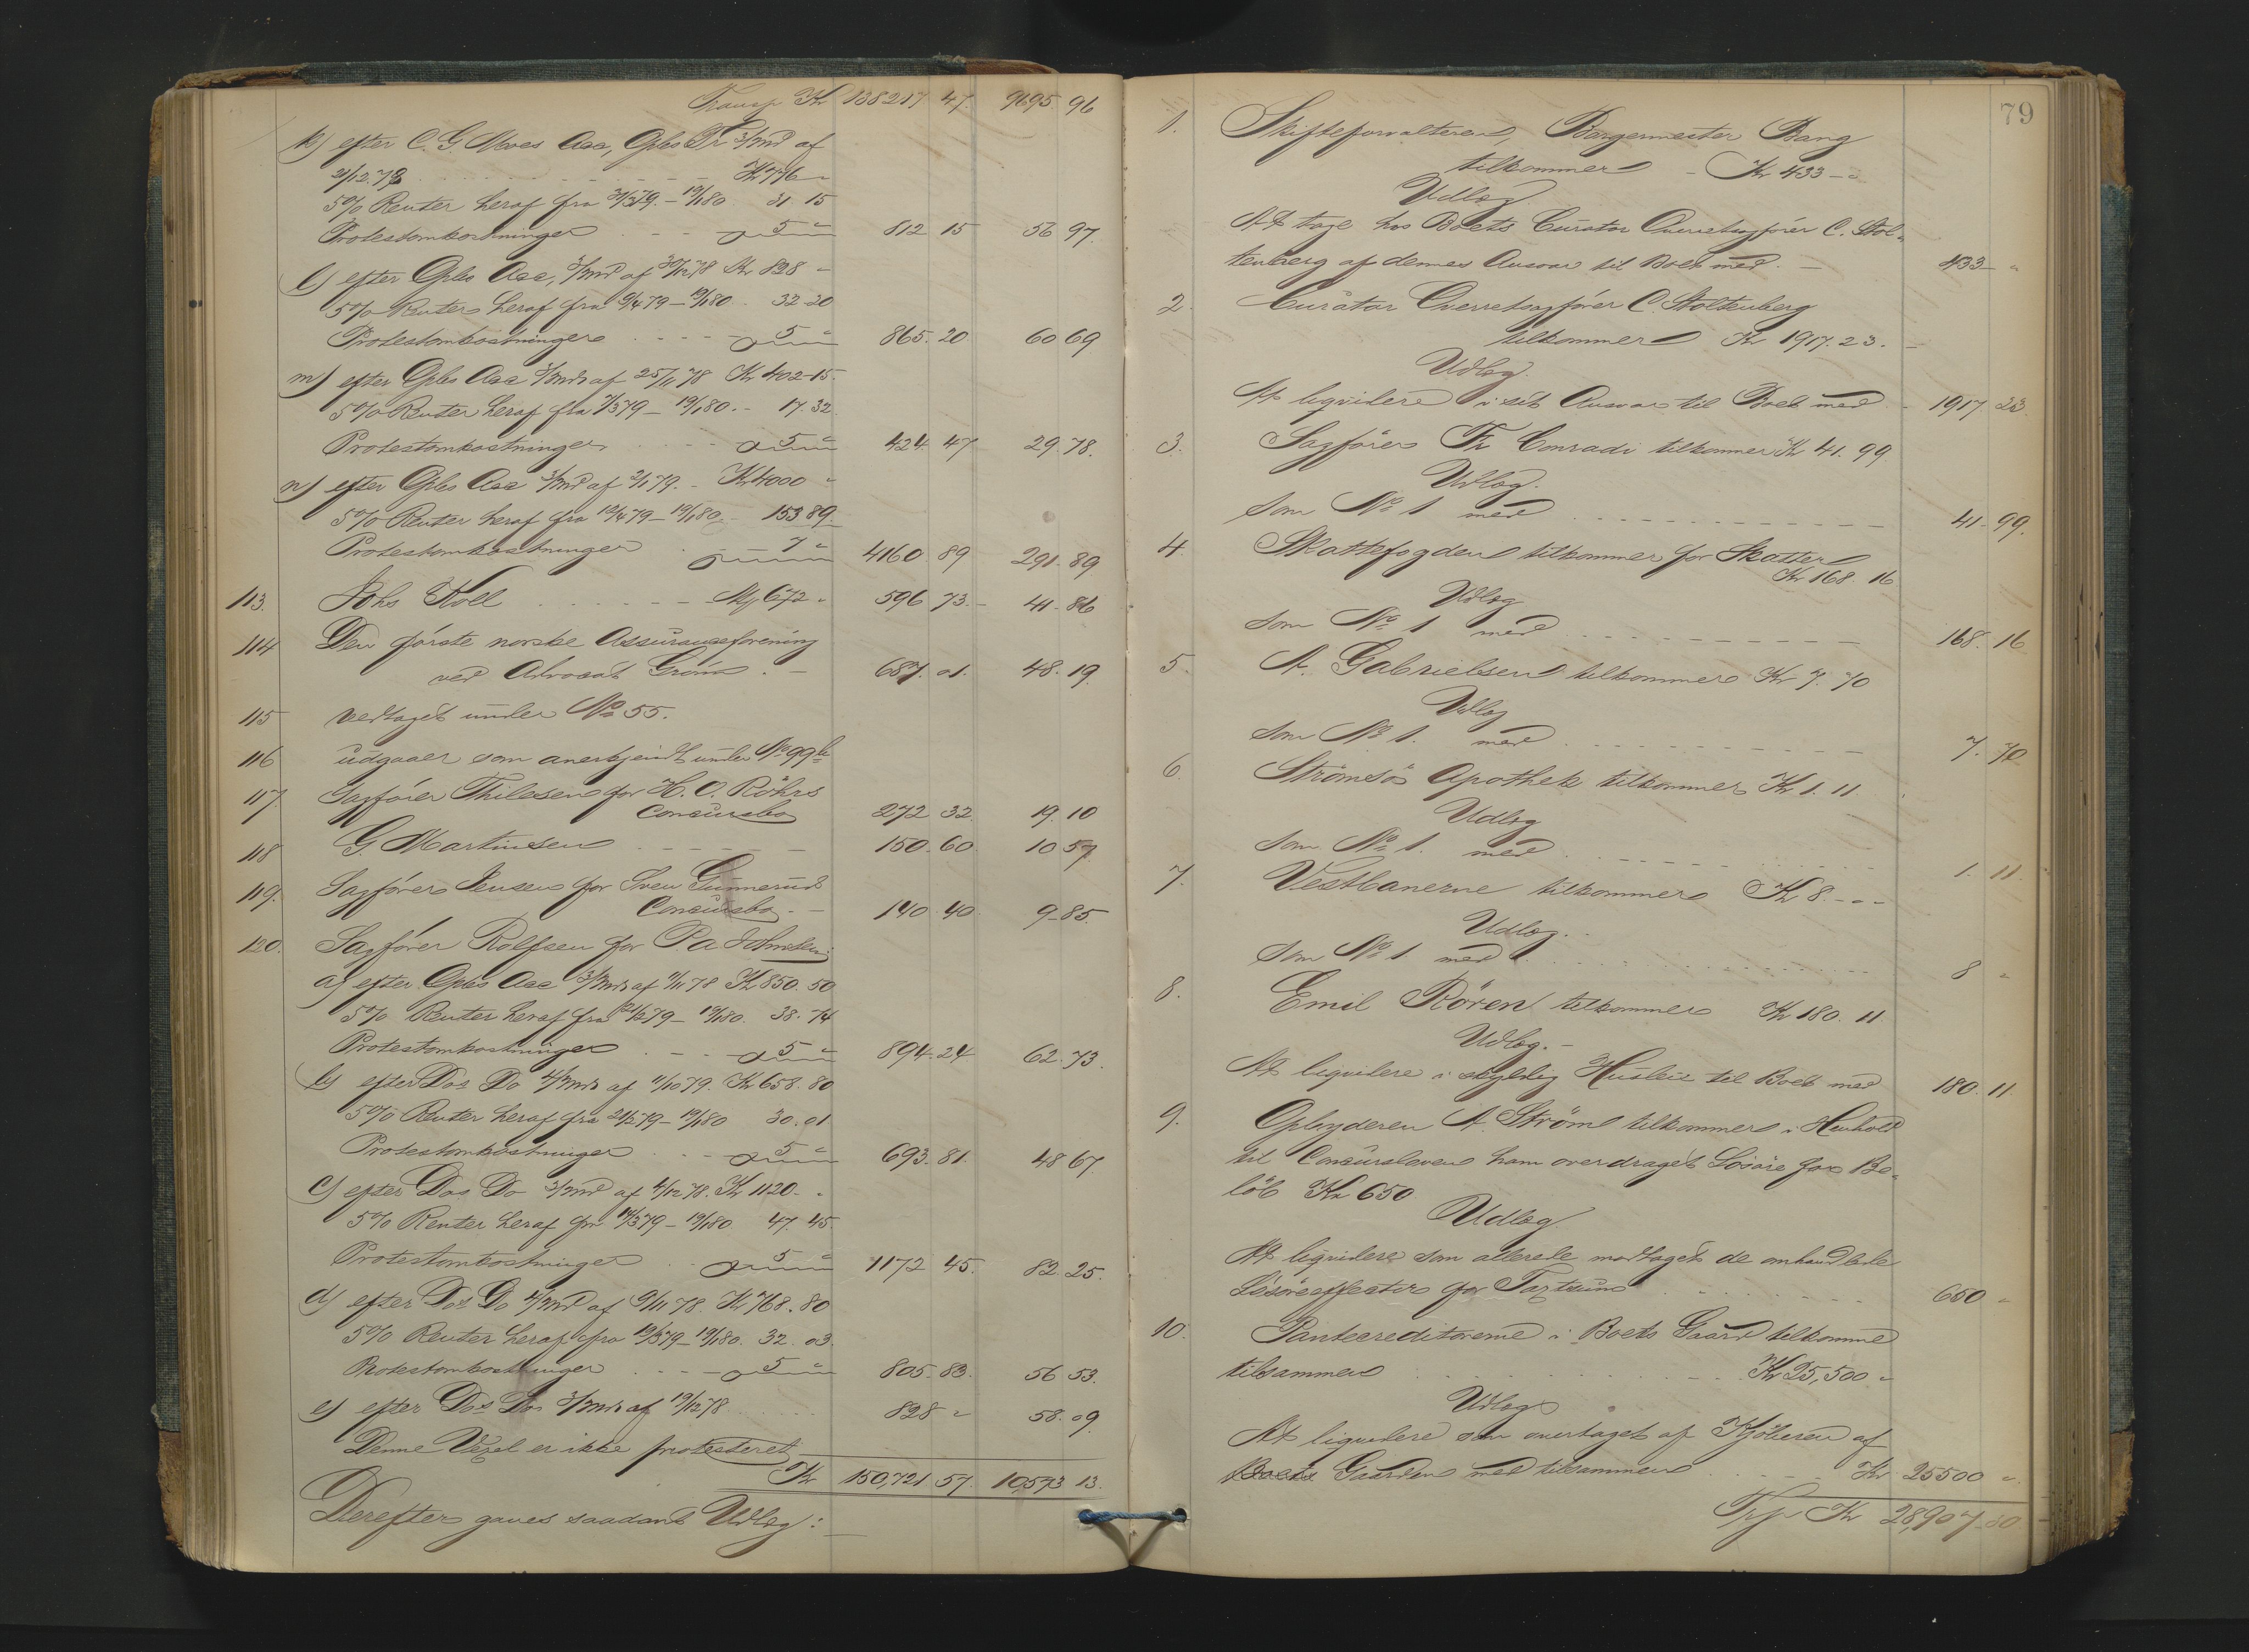 Transp Kr 138217 47. 9695 96
k) efter C. G. Moves Acc, Gjbs Tr 3/mnd af
2/12.78 Kr 776 "
5% Renter heraf fra 3/379.–19/180. 31 15
Protestomkostninger 5 " 812 15 56 97.
l) efter Gjbs Acc, 3/mnd af 30/1278 Kr 828 –
5% Renter heraf fra 2/479–19/180. 32 20
Protestomkostninger 5 " 865. 20 60 69
m) efter Gjbs Acc 3/mnd af 25/1178 Kr 402–15.
5% Renter heraf fra 1/379–19/180.– 17. 32
Protestomkostninger 5 " 424. 47 29. 78.
n) efter Gjbs Acc 3/mnd af 2/179. – Kr 4000 "
5% Renter heraf fra 10/479–19/180 – 153 89.
Protestomkostninger 7 " 4160. 89 291. 89
113. Johs Koll Mk 672 " 596. 73.– 41– 86
114 Den første norske Assuranceforening
ved Advocat Grönn. – 687. 01. 48. 19.
115 vedtaget under No 55.
116 udgaaer som anerkjendt under No 99 b
117 Sagfører Thilesen for H. O. Röhrs
Concursbo 272 32. 19. 10
118 G. Martinsen 150. 60 10 57
119. Sagfører Jensen for Sven Gunnerud
Concursbo. – 140. 40 9–85.
120. Sagfører Rolfsen for P. a Johnsen:
a) efter Gjbs Acc 3/mnd af 9/1178 Kr 850. 50
5% Renter heraf fra 12/279–19/180. 38. 74
Protestomkostninger 5 " 894. 24 62. 73.
b) efter Dos Do 4/mnd af 11/1079. Kr 658. 80
5% Renter heraf fra 21/279–19/180 30. 01
Protestomkostninger 5 " 693. 81. 48 67.
c) efter Dos Do 3/mnd af 4/1278. Kr 1120. "
5% Renter heraf fra 14/379–19/180 47. 45.
Protestomkostninger 5 " 1172 45. 82. 25.
d) efter Dos Do 4/mnd af 9/1178. Kr 768. 80
5% Renter heraf fra 19/379–19/180. 32. 03.
Protestomkostninger 5 " 805. 83. 56 53.
e) efter Dos Do 3/mnd af 19/1278 828 " 58. 09
Denne Vexel er ikke protesteret
Kr 150,721 57. 10,573 13.
Derefter gaves saadant Udlæg: –
79
1. Skifteforvalteren, Borgermester Bang
tilkommer – Kr 433 – "
Udlæg.
At tage hos Boets Curator Overretssagfører C. Stol-
tenberg af dennes Ansvar til Boet med – 433 – "
2. Curator Overretssagfører C. Stoltenberg
tilkommer Kr 1917. 23. –
Udlæg.
At liqvidere i sit Ansvar til Boet med – 1917. 23.
3. Sagfører Fr Conradi tilkommer Kr 41. 99
Udlæg.
som No 1 med 41– 99.
4. Skattefogden tilkommer for Skatter
Kr 168. 16
Udlæg
som No 1 med 168. 16
5. A. Gabrielsen tilkommer Kr 7. 70
Udlæg
som No 1. med 7. 70
6. Strømsø Apothek tilkommer Kr 1. 11
Udlæg
som No 1. med 1. 11.
7. Vestbanerne tilkommer Kr 8. – " –
Udlæg.
som No 1 med 8 "
8. Emil Rören tilkommer Kr 180. 11
Udlæg. –
At liqvidere i skyldig Husleie til Boet med 180. 11.
9. Opbyderen A. Strøm tilkommer i Henhold
til Concursloven ham overdraget Løsøre for Be-
løb Kr 650
Udlæg
At liqvidere som allerede modtaget de omhandlede
Løsøreeffecter for Taxtsum 650 "
10. Pantecreditorerne i Boets Gaard tilkomme
tilsammen Kr 25,500 "
Udlæg
At liqvidere som overtaget af Kjøberen af
Boets Gaarden med tilsammen Kr 25500 "
Trp Kr 28,907 30